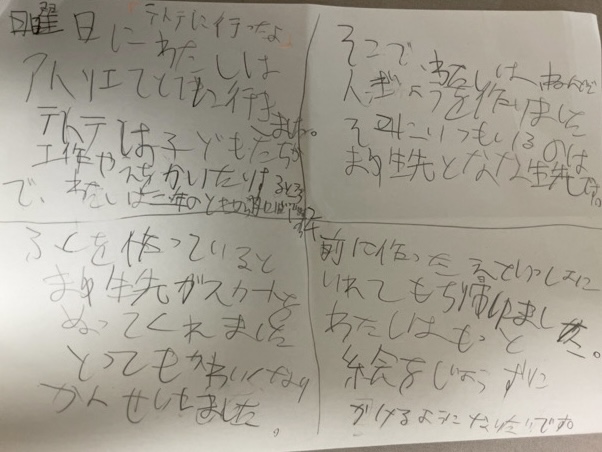 テトテに行ったよ
日曜日にわたしは
アトリエてとてに行き
ました。
テトテは子どもたちが
工作やえをかいたりするところ
で、わたしは一年の
そこで、わたしは、ねんどで
人ぎょうを作りました
そこにいつもいるのは
まり先生となな先生です。
ふくを作っていると
まり先生がスカートを
ぬってくれました
とってもかわいくなり
かんせいしました。
前に作った
いれてもち帰りました。
わたしはもっと
絵をじょうずに
かけるようになりたいです